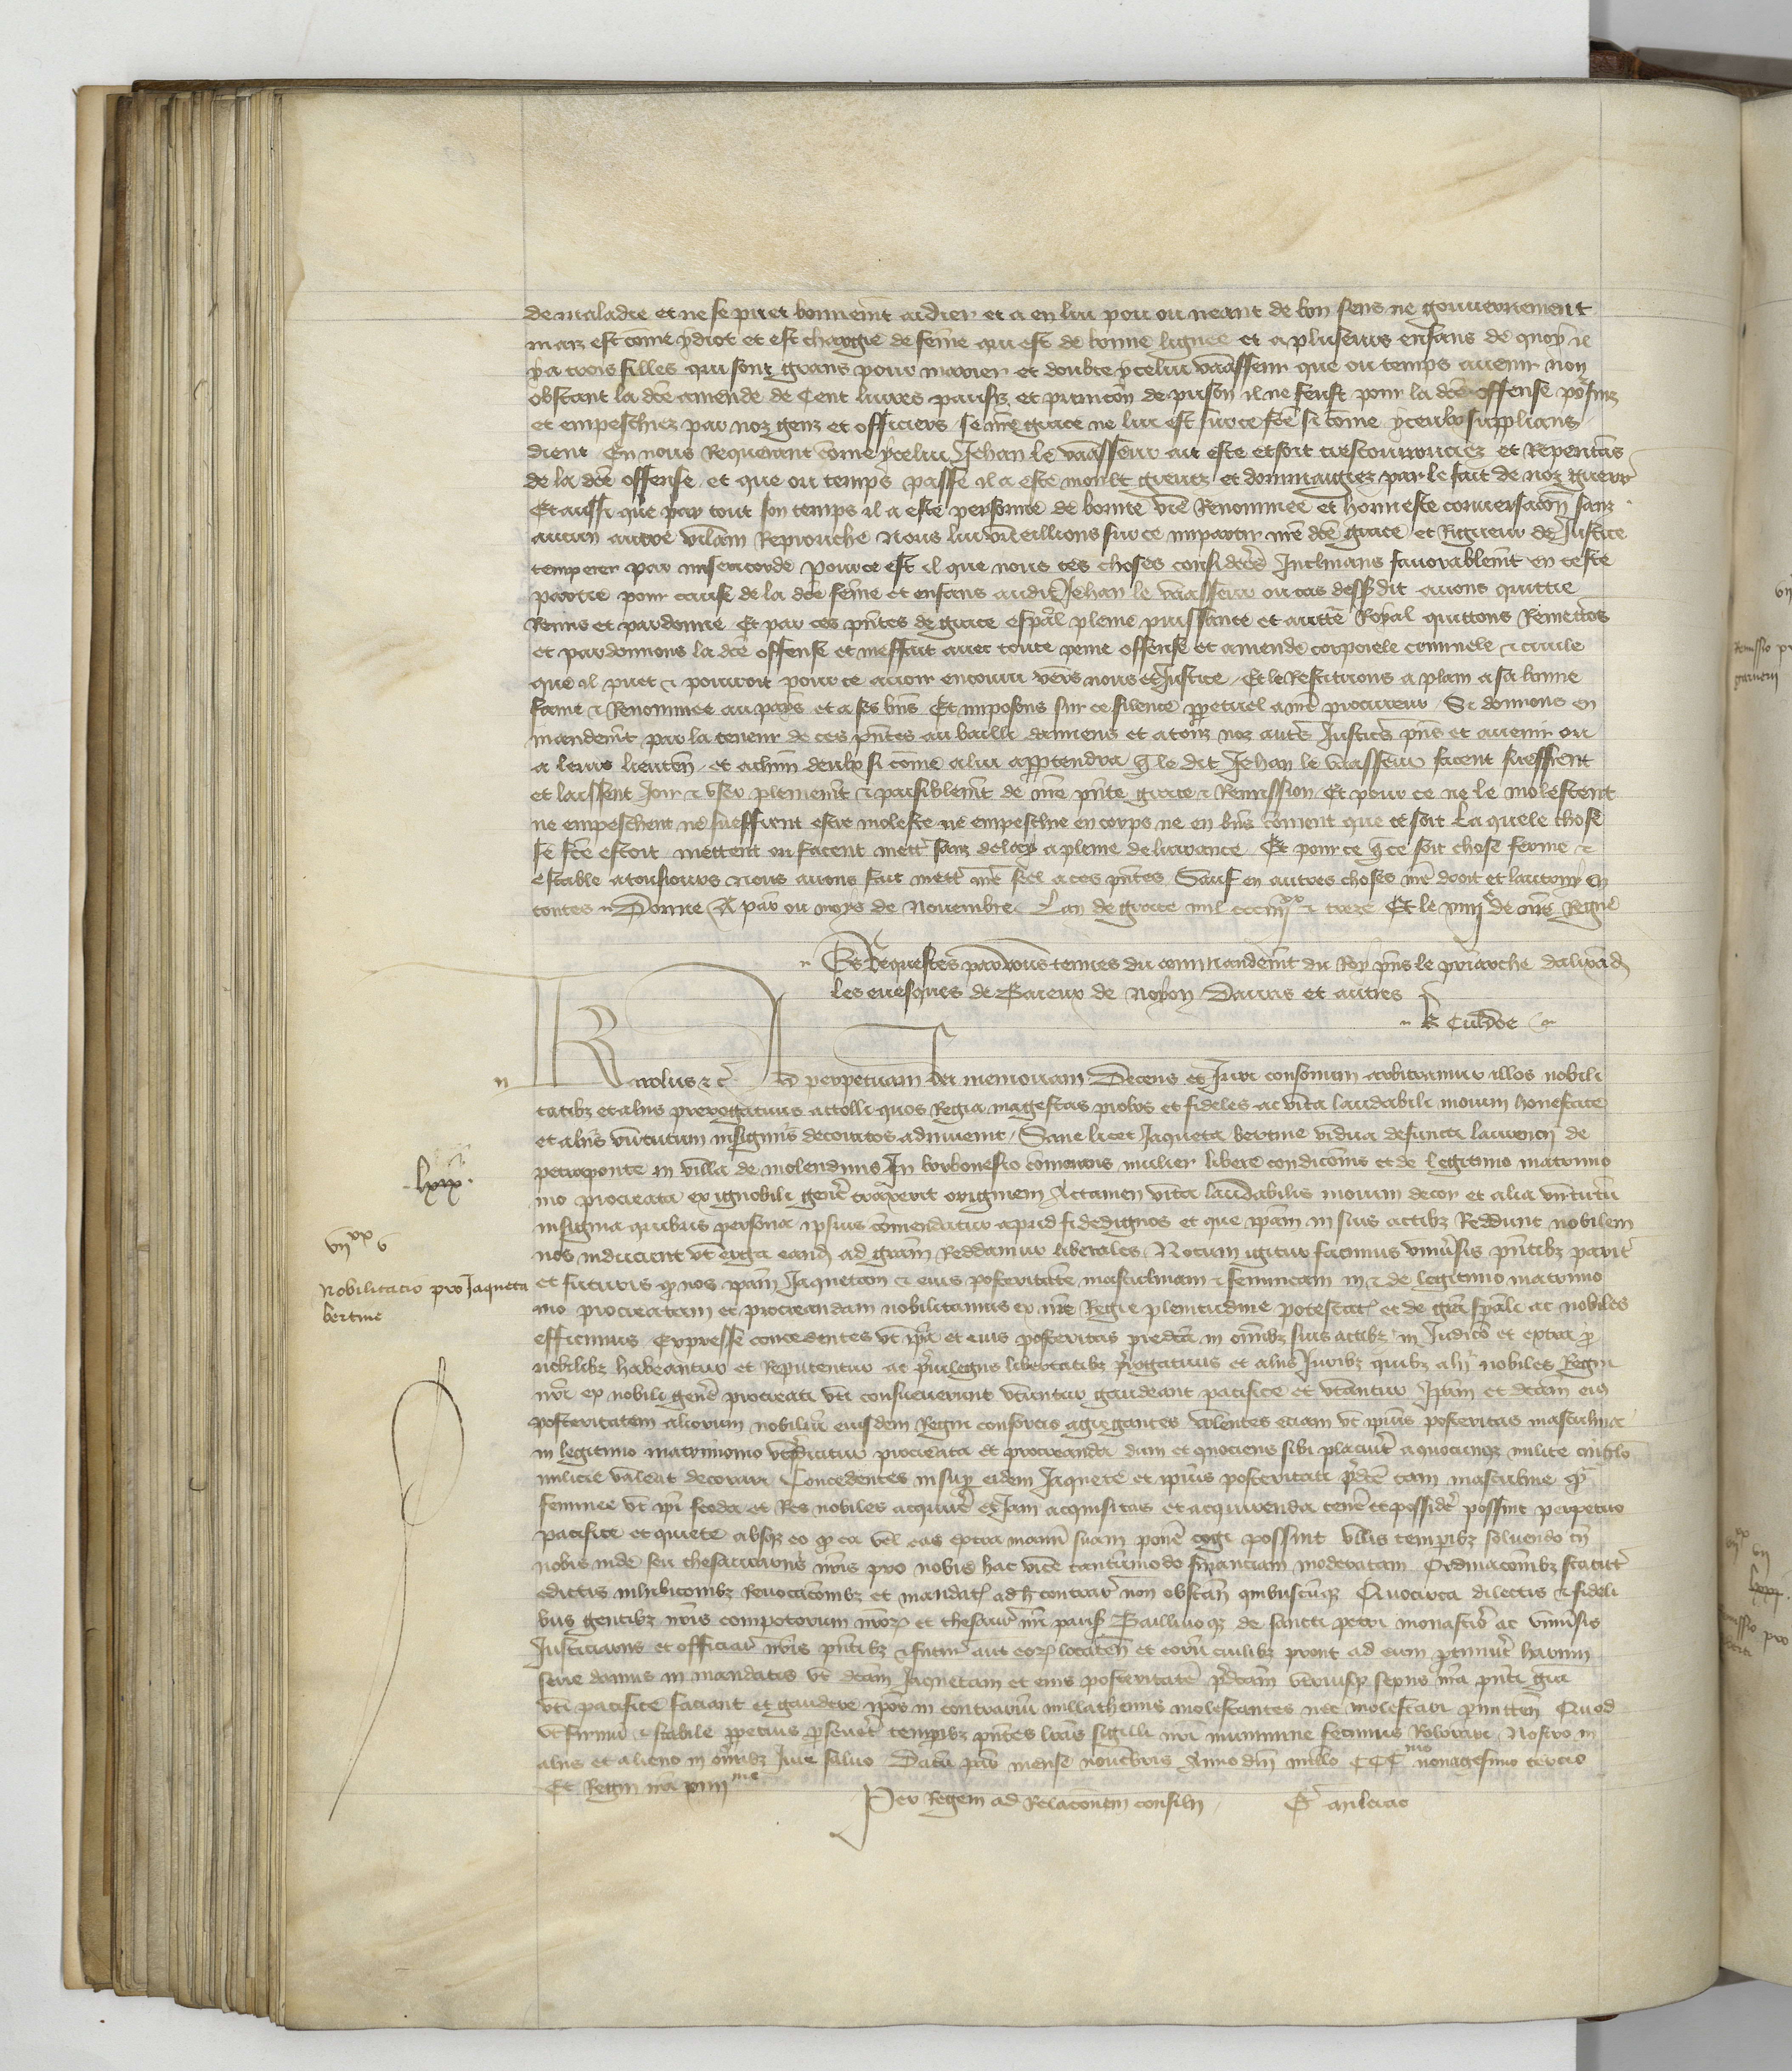 de maladie et ne se puet bonnemt aidier et a en lui pou ou neant de bon sens ne gouuernement
maiz est come ydiot et est chargie de feme qui est de bonne lignee et a pluseurs enfans de quoy il
y a trois filles qui sont grans pour marier et doubte ycelui vaasseur que ou temps auenir non
obstant la dce amende de Cent liures parisiz et punicon de prison il ne feust pour la dce offense poursuiz
et empeschiez par noz gens et officiers se nre grace ne lui est sur ce fce si come yceulx supplians
dient En nous Requerant come ycelui Jehan le vaasseur ait este et soit tres courrouciez et Repentans
de la dce offense et que ou temps passe il a este moult greuez et dommagiez par le fait de noz guerr
Et aussi que par tout son temps il a este personne de bonne vie Renommee et honneste conuersacon sanz
aucun autre vilain Reprouche Nous lui vueillions sur ce impartir nre dce grace et Rigueur de Justice
temperer par misericorde pour ce est il que nous ces choses considerees Inclinans fauorablemt en ceste
partie pour cause de la dce feme et enfans audit Jehan le vaasseur ou cas dessusdit auons quittie
Remis et pardonne Et par ces pntes de grace espal pleine puissance et auctte Royal quittons Remettons
et pardonnons la dce offense et meffait auec toute peine offense et amende corporele criminele & ciuile
que il puet & pourroit pour ce auoir encouru vers nous et Justice Et le Restituons a plain a sa bonne
fame & Renommee au pays et a ses biens Et imposons sur ce silence perpetuel a nre procureur Si donnons en
mandemt par la teneur de ces pntes au bailli damiens et a touz noz autres Justiciers pns et auenir ou
a leurs lieuten et a chun deulx si come a lui appartendra que le dit Jehan le vaasseur facent sueffrent
et laissent Joir & vser plainemt & paisiblemt de nre pnte grace & Remission Et pour ce ne le molestent
ne empeschent ne sueffrent estre moleste ne empeschie en corps ne en biens coment que ce soit La quele chose
se fce estoit mettent ou facent mettre sanz delay a pleine deliurance Et pour ce que ce soit chose ferme &
estable a tousiours Nous auons fait mettre nre seel a ces pntes Sauf en autres choses nre droit et lautruy en
toutes Donne A par ou moys de Nouembre Lan de grace mil ccciiijxx & treze Et le xiiije de nre Regne
Es Requestes par vous tenues du commandemt du Roy pns le patriarche dalixand
les euesques de Baieux de Noyon Darras et autres
Culdoe
Karolus &c Ad perpetuam Rei memoriam Decens et Juri consonum arbitramur illos nobili
tatibz et aliis prerogatiuis attolli quos Regia magestas probos et fideles ac vita laudabili morum honestate
et aliis virtutum insigniis decoratos adinuenit Sane licet Jaqueta bertine vidua defuncti laurencii de
petraponte in villa de molendinis In borbonesio comorans mulier libere condicionis et de legitimo matrimo
nio procreata ex ignobili genere traxerit originem Attamen vita laudabilis morum decor et alia virtutum
insignia quibus persona ipsius comendatur apud fidedignos et que ipam in suis actibz Reddunt nobilem
nos inducunt vt erga eand ad gram Reddamur liberales Notum igitur facimus vniuersis pntibz pariter
et futuris quod nos ipam Jaquetam & eius posteritatem masculinam & femineam in & de legitimo matrimo
nio procreatam et procreandam nobilitamus ex nre Regie plenitudine potestatis et de gra spali ac nobiles
efficimus Expresse concedentes vt ipa et eius posteritas predicta in omibz suis actibz in Judicio et extra pro
nobilibz habeantur et Reputentur ac priuilegiis libertatibz prerogatiuis et aliis Juribz quibz alii nobiles Regni
nri ex nobili genere procreati vti consueuerunt vtuntur gaudeant pacifice et vtantur Ipam et dictam eius
posteritatem aliorum nobilium eiusdem Regni consorciis agregantes Volentes eciam vt ipius posteritas masculina
in legitimo matrimonio vt predicitur procreata et procreanda dum et quociens sibi placuerit a quocunqz milite cingulo
milicie valeat decorari Concedentes insuper eidem Jaquete et ipius posteritati predicte tam masculine quam
feminee vt ipi feoda et Res nobiles acquirere et Jam acquisitas et acquirenda tenere et possidere possint perpetuo
pacifice et quiete absqz eo quod ea vel eas extra manum suam ponere cogi possint vllis tempibz soluendo tn
nobis inde seu thesaurariis nris pro nobis hac vice tantumodo financiam moderatam Ordinacionibz statutis
edictis inhibicionibz Reuocacionibz et mandatis ad hec contrariis non obstan quibuscunqz Quocirca dilectis & fideli
bus gentibz nris compotorum nrorum et thesaurariis nris parisius Balliuoqz de sancti petri monasterio ac vniuersis
Justiciariis et officiariis nris pntibz & futuris aut eorum locaten et eorum cuilibz prout ad eum pertinuerit harum
serie damus in mandatis vt dictam Jaquetam et eius posteritatem predictam vtriusqz sexus nra pnti gra
vti pacifice faciant et gaudere ipos in contrarium nullathenus molestantes nec molestari permitten Quod
vt firmum & stabile perpetuis perseueret tempibz pntes lras sigilli nri munimine fecimus Roborari Nostro in
aliis et alieno in omibz Jure saluo Datum par mense nouembris Anno dni millo CCCmo nonagesimo tercio
Et Regni nri xiiijme
Per Regem ad Relacionem consilii
lxix
vijxx v
Nobilitacio pro Jaqueta
bertine